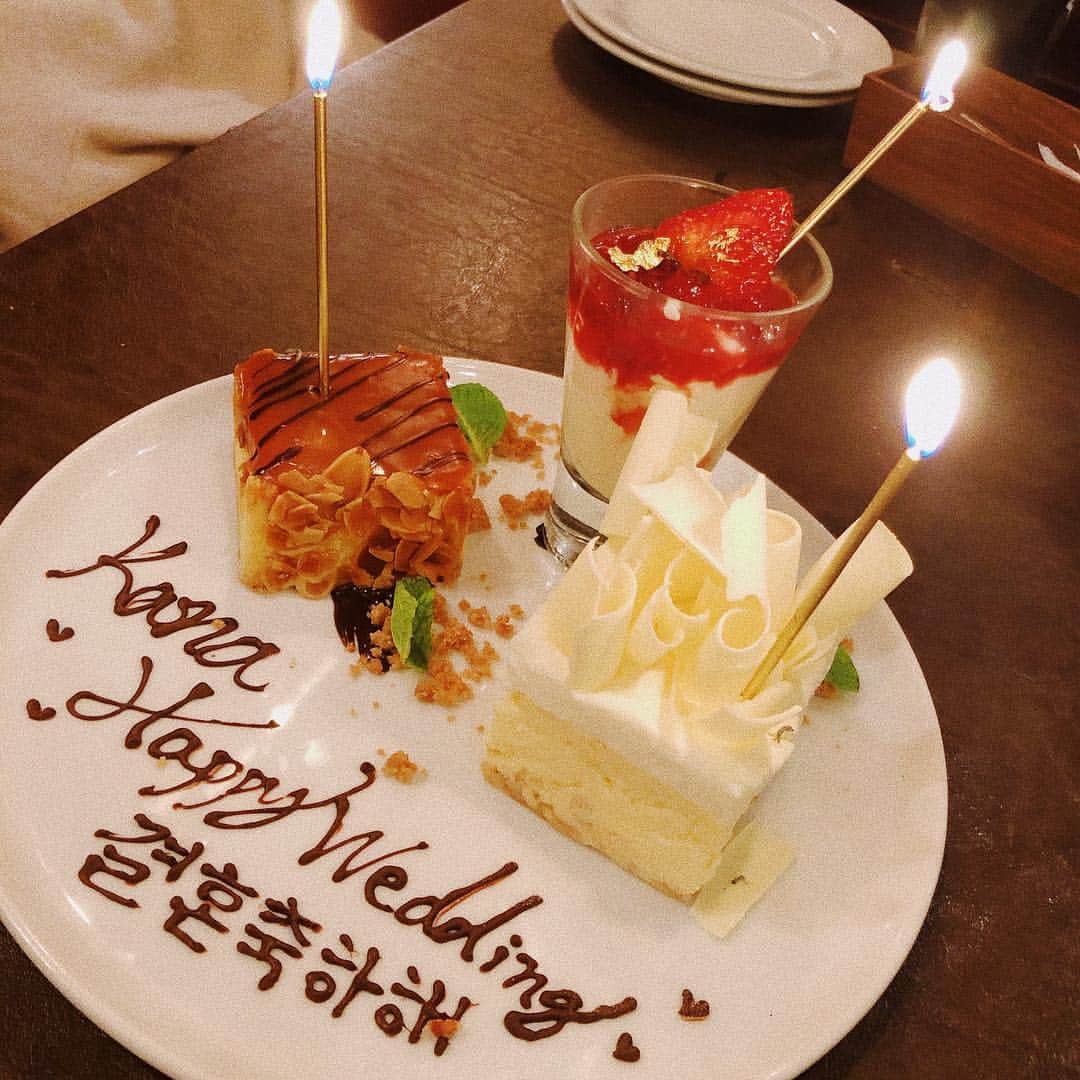 Kana
Happy Wedding
결혼축하해